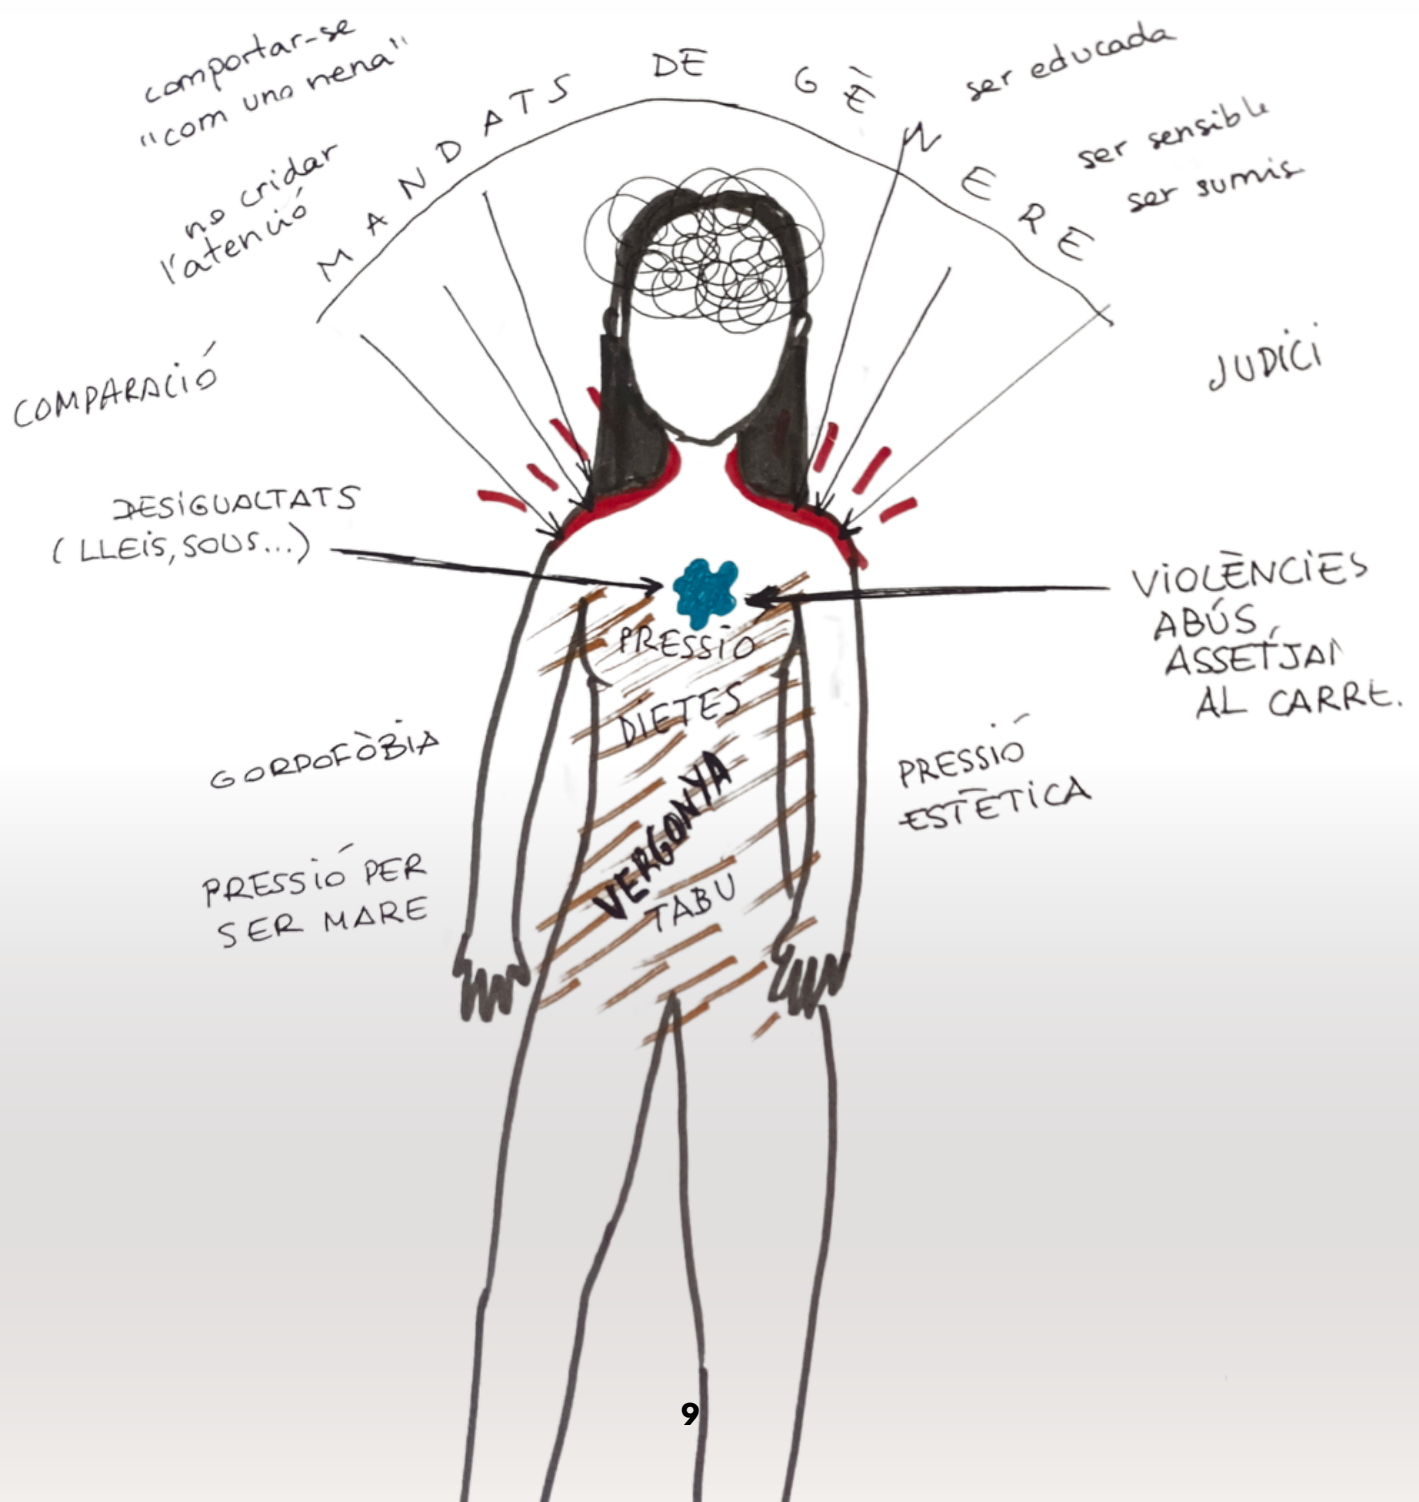 comportar-se
"com una nena"
no cridar
l'atenció
MANDATS DE GÈNERE
ser educada
ser sensible
ser sumis
COMPARACIÓ
JUDICI
DESIGUALTATS
(LLEIS, SOUS...)
VIOLÈNCIES
ABÚS,
ASSETJAI
AL CARRE.
PRESSIÓ
DIETES
VERGONYA
TABU
GORDOFÒBIA
PRESSIÓ
ESTÈTICA
PRESSIÓ PER
SER MARE
9